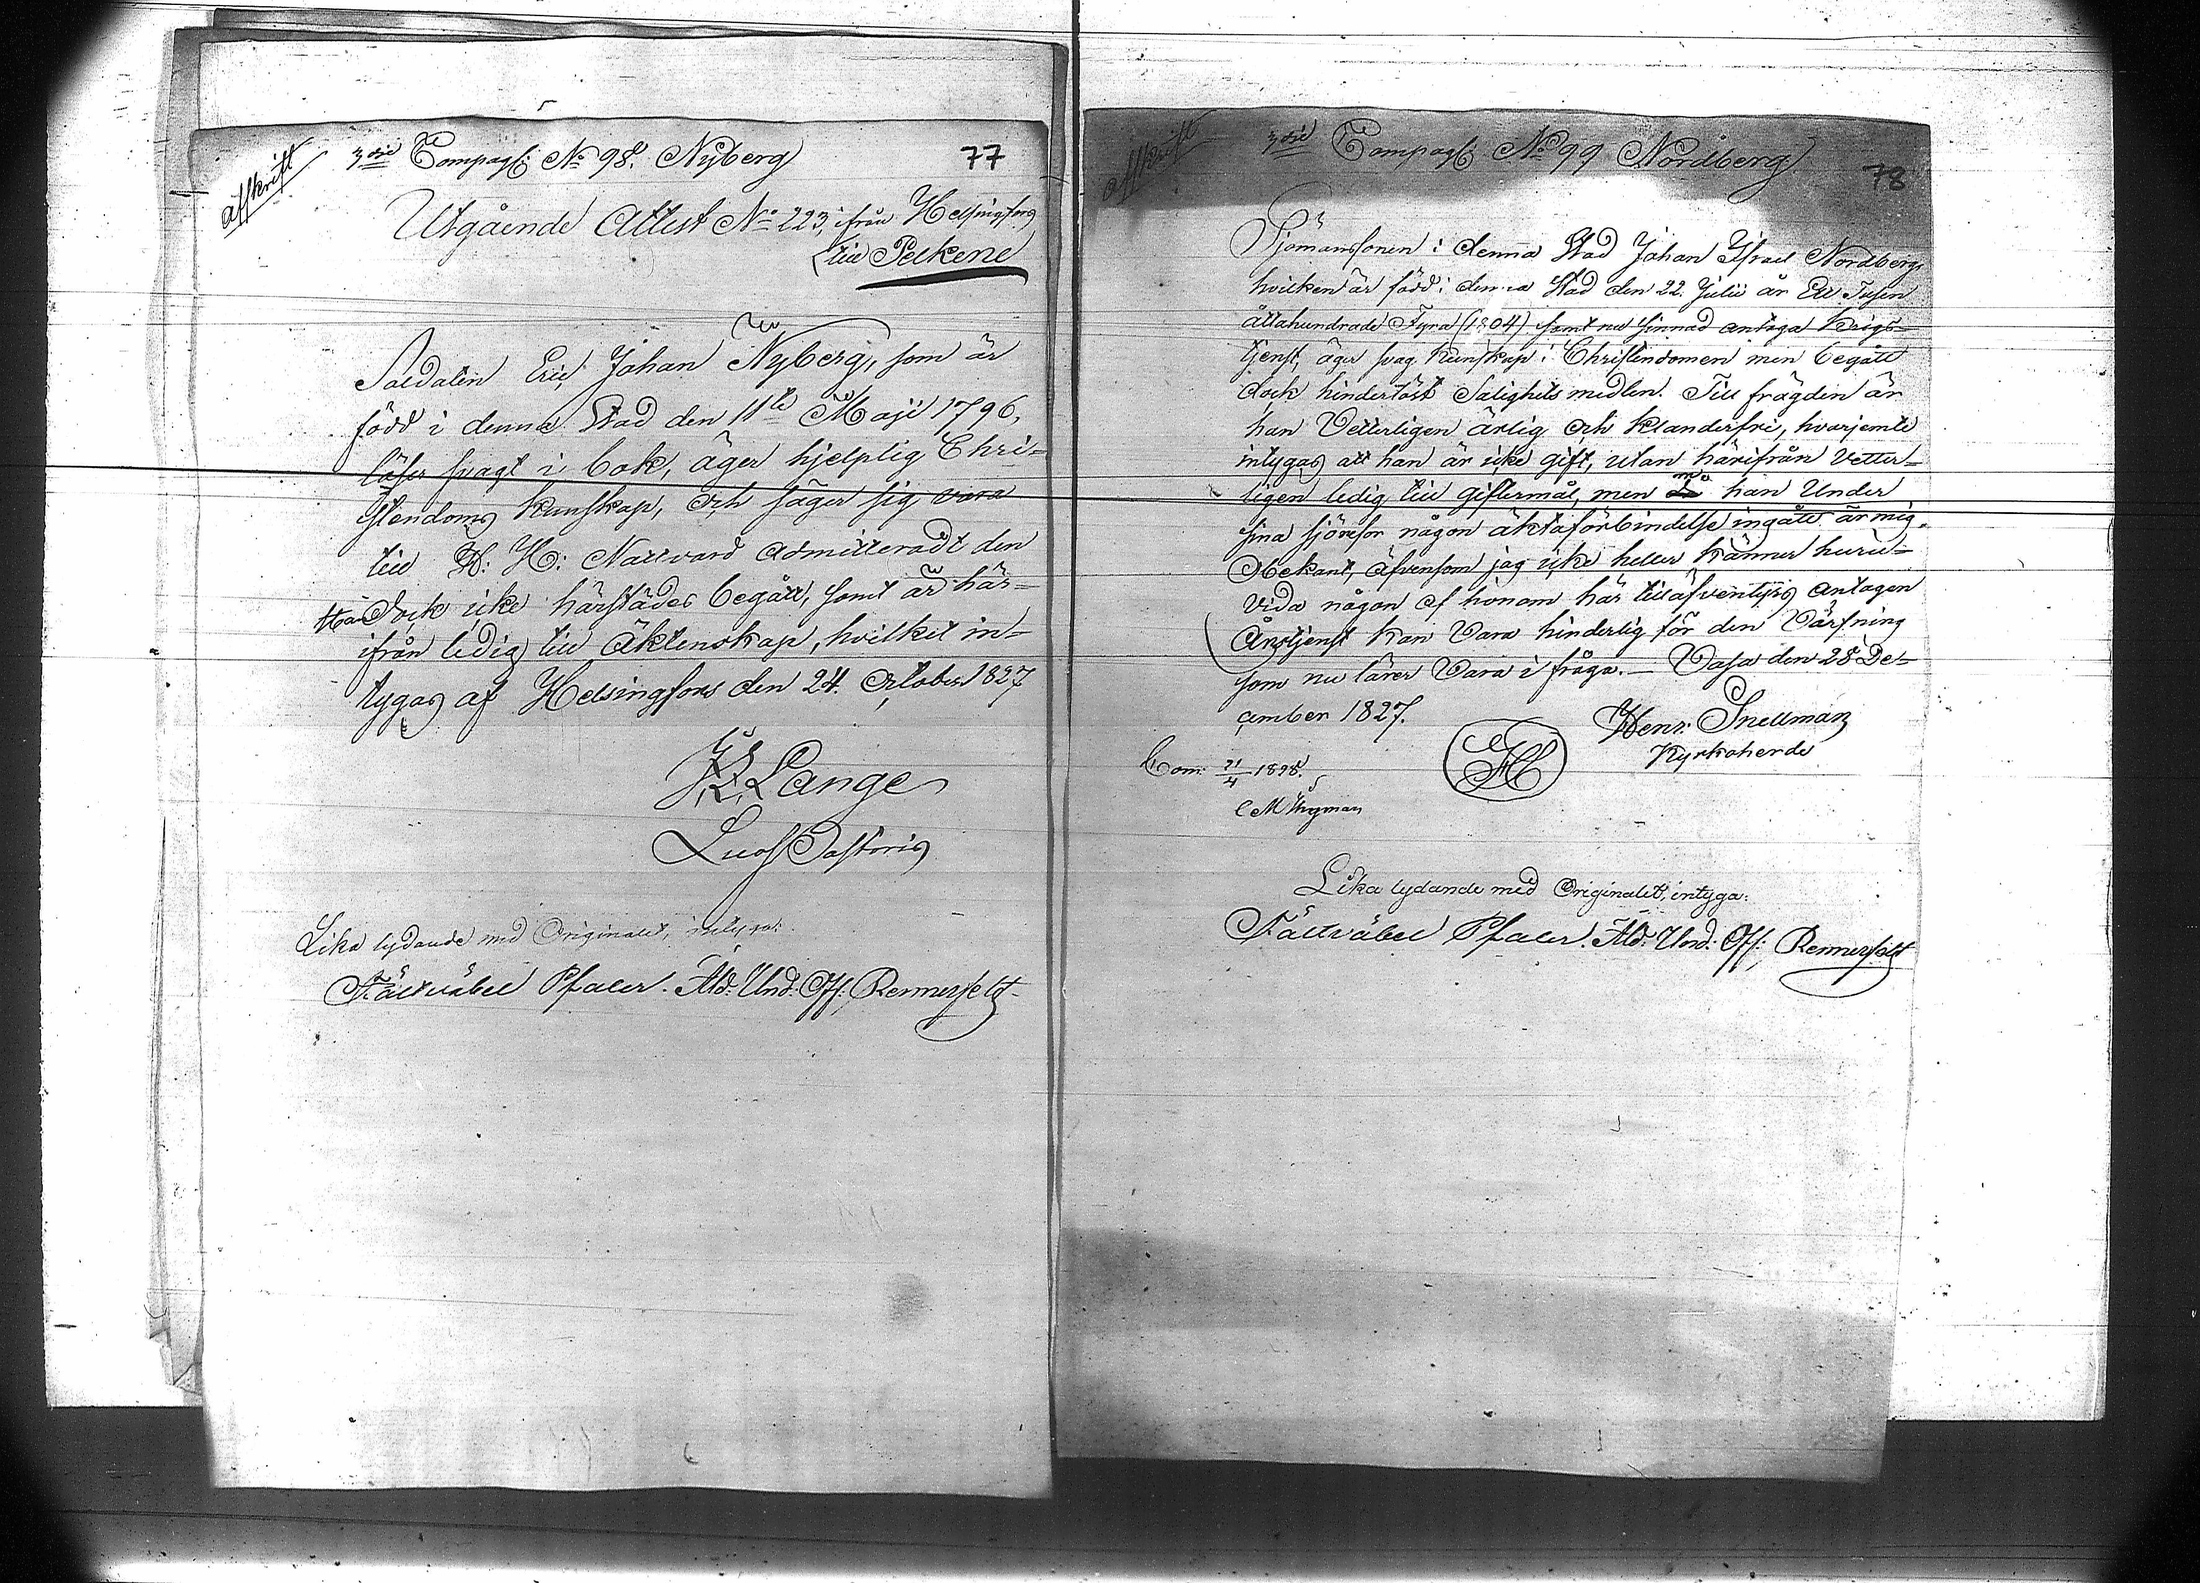 Afskrift
3dje Compagt: No 98. Nyberg
77
Utgående Attest No 223, ifrån Helsingfors
till Pelkene
Soldaten Eric Johan Nyberg, som är
född i denna Stad den 11te Maji 1796,
läser svagt i bok, äger hjelplig Chri-
stendoms kunskap, och säger sig vara
till H: H: Nattvard admitterad den
dock icke härstädes begått, samt är här-
ifrån ledig till Äktenskap, hvilket in-
tygas af Helsingfors den 24. October 1827
Lange
Pastoris
Lika lydande med Originalet, intyga:
Fältväbel Pfaler. Äld: Und: Off: Rennerfelt
Afskrift
3dje Compagt: No 99 Nordberg
78
Sjömanssonen i denna Stad Johan Israel Nordberg,
hvilken är född i denna Stad den 22. Julii år Ett Tusen
åttahundrade Fyra (1804) samt nu sinnad antaga Krigs-
tjenst, äger svag kunskap i Christendomen men begått
dock hinderlöst Salighets medlen. Till frägden är
han Vetterligen ärlig och klanderfri, hvarjemte
intygas att han är icke gift, utan härifrån Vetter-
ligen ledig till giftermål, men om han Under
sina sjöresor någon äktaförbindelse ingått är mig
Obekant, äfvensom jag icke heller känner huru-
vida någon af honom här till äfventyrs antagen
Årstjenst kan Vara hinderlig för den Värfning
som nu lärer Vara i fråga. — Vasa den 28 De-
cember 1827.
Henr: Snellman
Kyrkoherde
Com: 21/4 1898.
Lika lydande med Originalet, intyga:
Fältväbel Pfaler. Äld: Und: Off: Rennerfelt